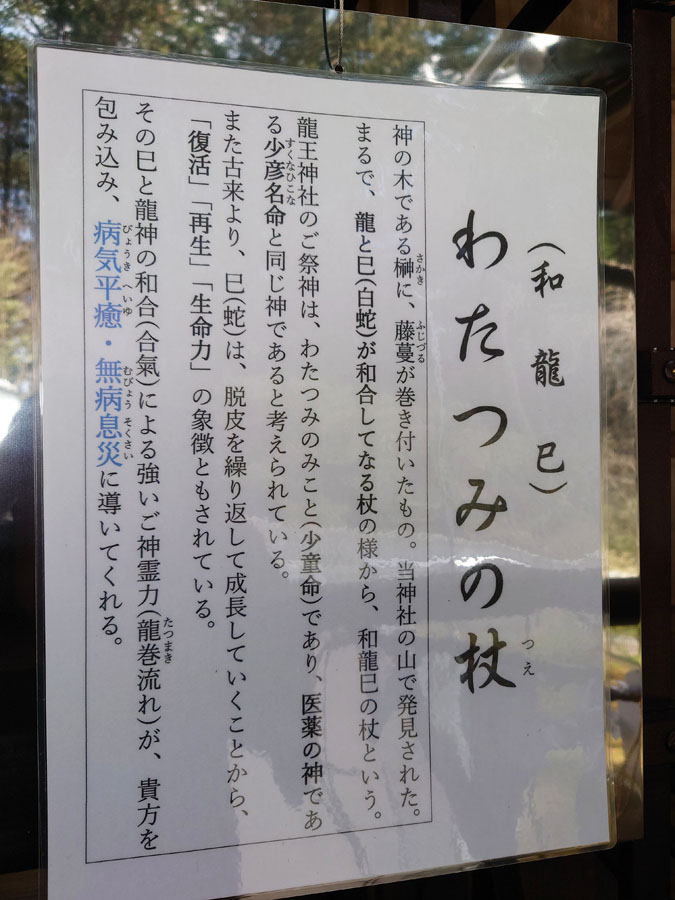 (和龍巳)
わたつみの杖
つえ
神の木である榊に、藤蔓が巻き付いたもの。当神社の山で発見された。
さかき
ふじづる
まるで、龍と巳(白蛇)が和合してなる杖の様から、和龍巳の杖という。
龍王神社のご祭神は、わたつみのみこと(少童命)であり、医薬の神であ
る少彦名命と同じ神であると考えられている。
すくなひこな
また古来より、巳(蛇)は、脱皮を繰り返して成長していくことから、
「復活」「再生」「生命力」の象徴ともされている。
その巳と龍神の和合(合氣)による強いご神霊力(龍巻流れ)が、貴方を
たつまき
包み込み、病気平癒・無病息災に導いてくれる。
びょうき へいゆ
むびょう そくさい